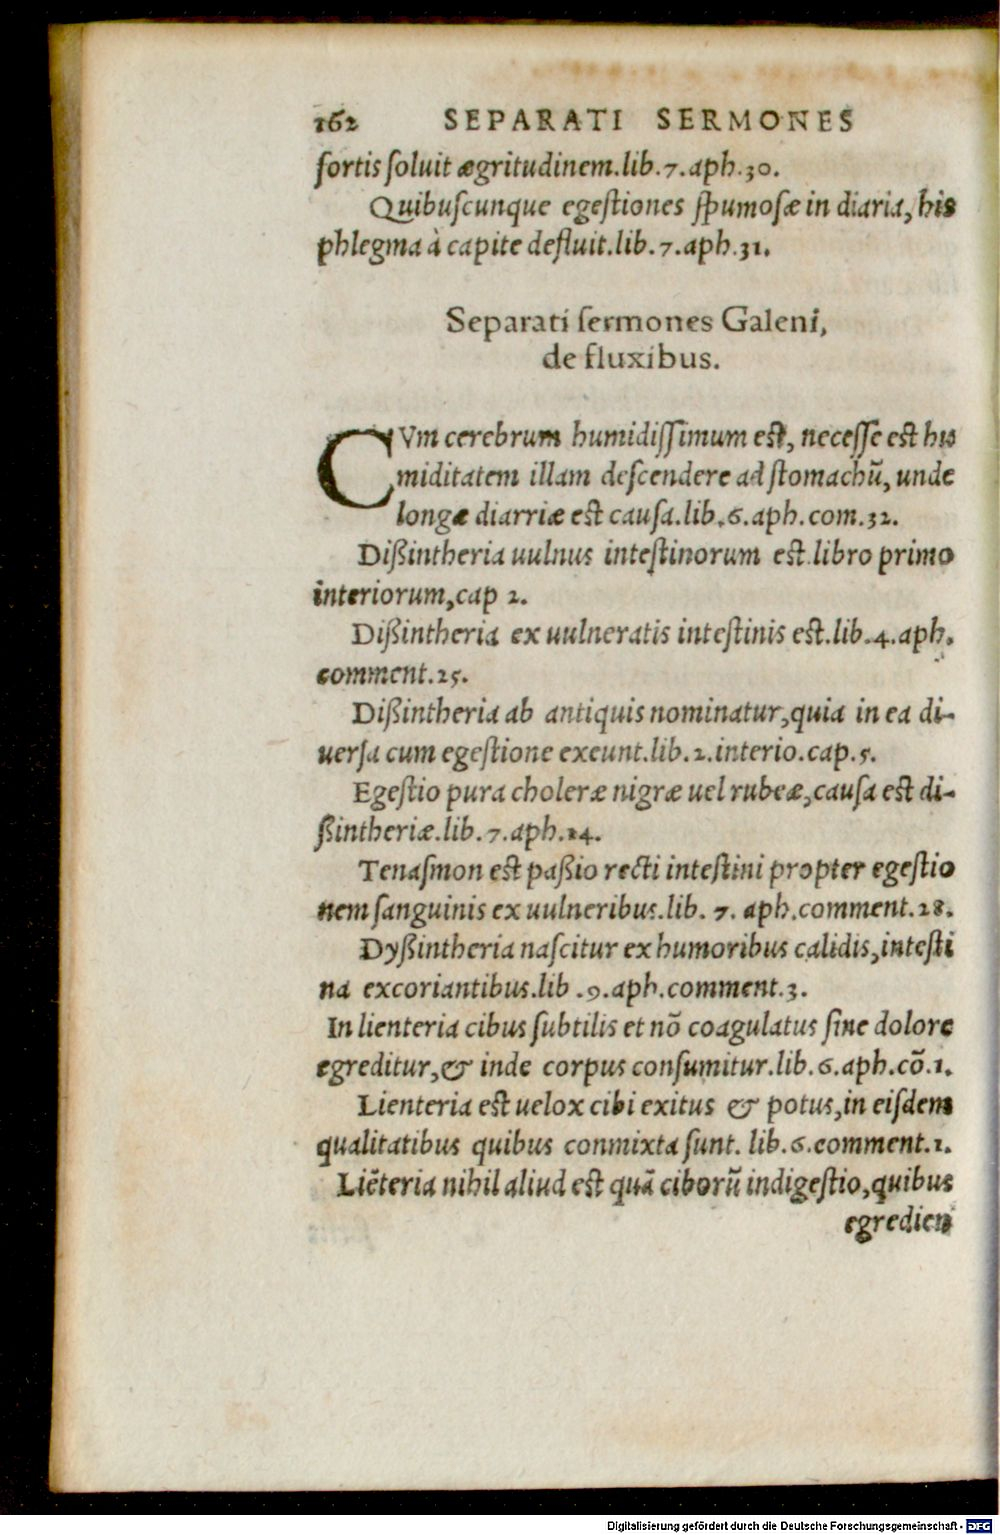 162 SEPARATI SERMONES
ſortis ſoluit ægritudinem.lib.7.aph.30.
Quibuſcunque egeſtiones ſpumoſæ in diaria, his
phlegma à capite defluit.lib.7.aph.31.
Separati ſermones Galeni,
de fluxibus.
CVm cerebrum humidiſſimum eſt, neceſſe eſt hu
miditatem illam deſcendere ad ſtomachũ, unde
longæ diarriæ eſt cauſa.lib.6.aph.com.32.
Dißintheria uulnus inteſtinorum eſt.libro primo
interiorum,cap 2.
Dißintheria ex uulneratis inteſtinis eſt.lib.4.aph.
comment.25.
Dißintheria ab antiquis nominatur,quia in ea di-
uerſa cum egeſtione exeunt.lib.2.interio.cap.5.
Egeſtio pura choleræ nigræ uel rubeæ,cauſa eſt di-
ßintheriæ.lib.7.aph.24.
Tenaſmon eſt paßio recti inteſtini propter egeſtio
nem ſanguinis ex uulneribus.lib. 7. aph.comment.28.
Dyßintheria naſcitur ex humoribus calidis,inteſti
na excoriantibus.lib .9.aph.comment.3.
In lienteria cibus ſubtilis et nõ coagulatus ſine dolore
egreditur,& inde corpus conſumitur.lib.6.aph.cõ.1.
Lienteria eſt uelox cibi exitus & potus,in eiſdem
qualitatibus quibus conmixta ſunt. lib.6.comment.1.
Liẽteria nihil aliud eſt quã ciborũ indigeſtio,quibus
egredien
Digitalisierung gefördert durch die Deutsche Forschungsgemeinschaft - DFG